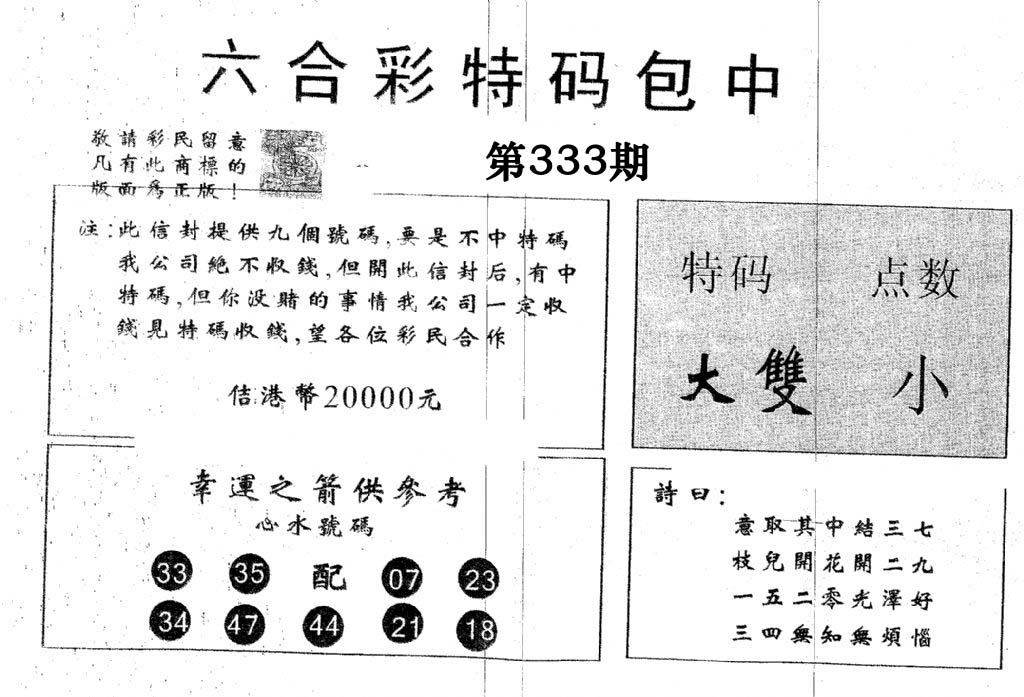 六合彩特码包中
敬請彩民留意
凡有此商標的
版面為正版！
第333期
注：此信封提供九個號碼,要是不中特碼
我公司絕不收錢,但開此信封后,有中
特碼,但你没賭的事情我公司一定收
錢見特碼收錢,望各位彩民合作
佶港幣20000元
特码 点数
大雙 小
幸運之箭供參考
心水號碼
33 35 配 07 23
34 47 44 21 18
詩曰：
意取其中結三七
枝兒開花開二九
一五二零光澤好
三四無知無煩惱